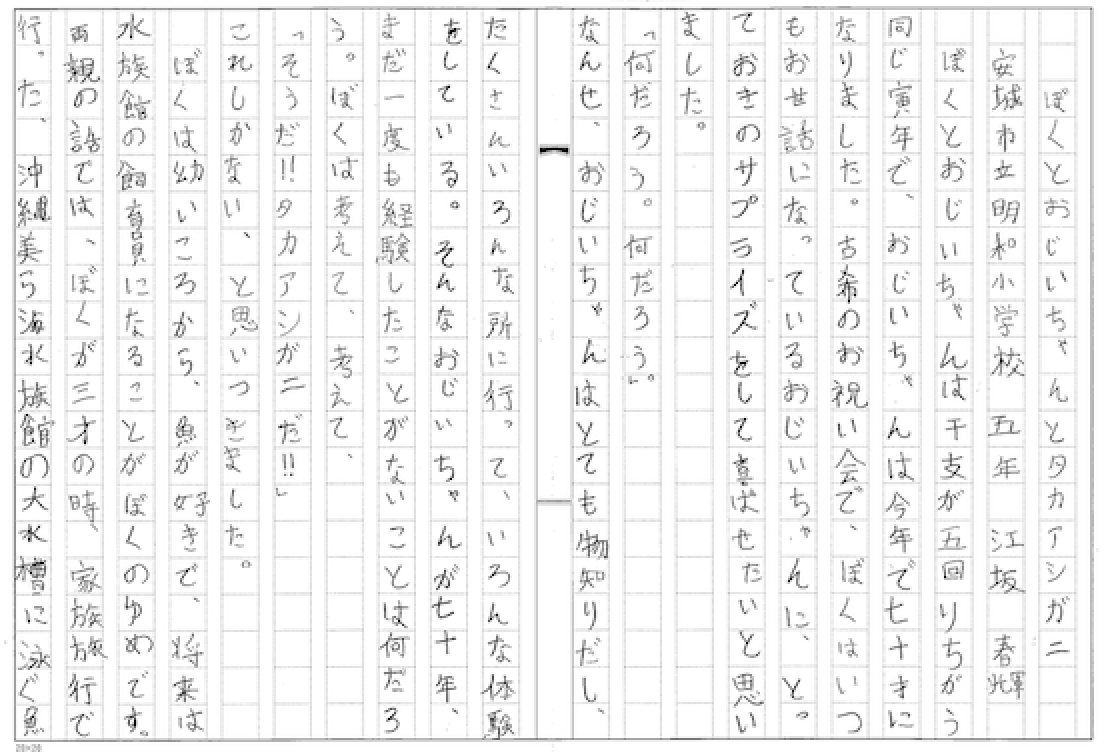 ぼくとおじいちゃんとタカアシガニ
安城市立明和小学校 五年 江坂 春輝
ぼくとおじいちゃんは干支が五回りちがう
同じ寅年で、おじいちゃんは今年で七十才に
なりました。古希のお祝い会で、ぼくはいつ
もおせ話になっているおじいちゃんに、とっ
ておきのサプライズをして喜ばせたいと思い
ました。
「何だろう。何だろう。」
なんせ、おじいちゃんはとても物知りだし、
たくさんいろんな所に行って、いろんな体験
をしている。そんなおじいちゃんが七十年、
まだ一度も経験したことがないことは何だろ
う。ぼくは考えて、考えて、
「そうだ!!タカアシガニだ!!」
これしかない、と思いつきました。
ぼくは幼いころから、魚が好きで、将来は
水族館の飼育員になることがぼくのゆめです。
両親の話では、ぼくが三才の時、家族旅行で
行った、沖縄美ら海水族館の大水槽に泳ぐ魚
20×20